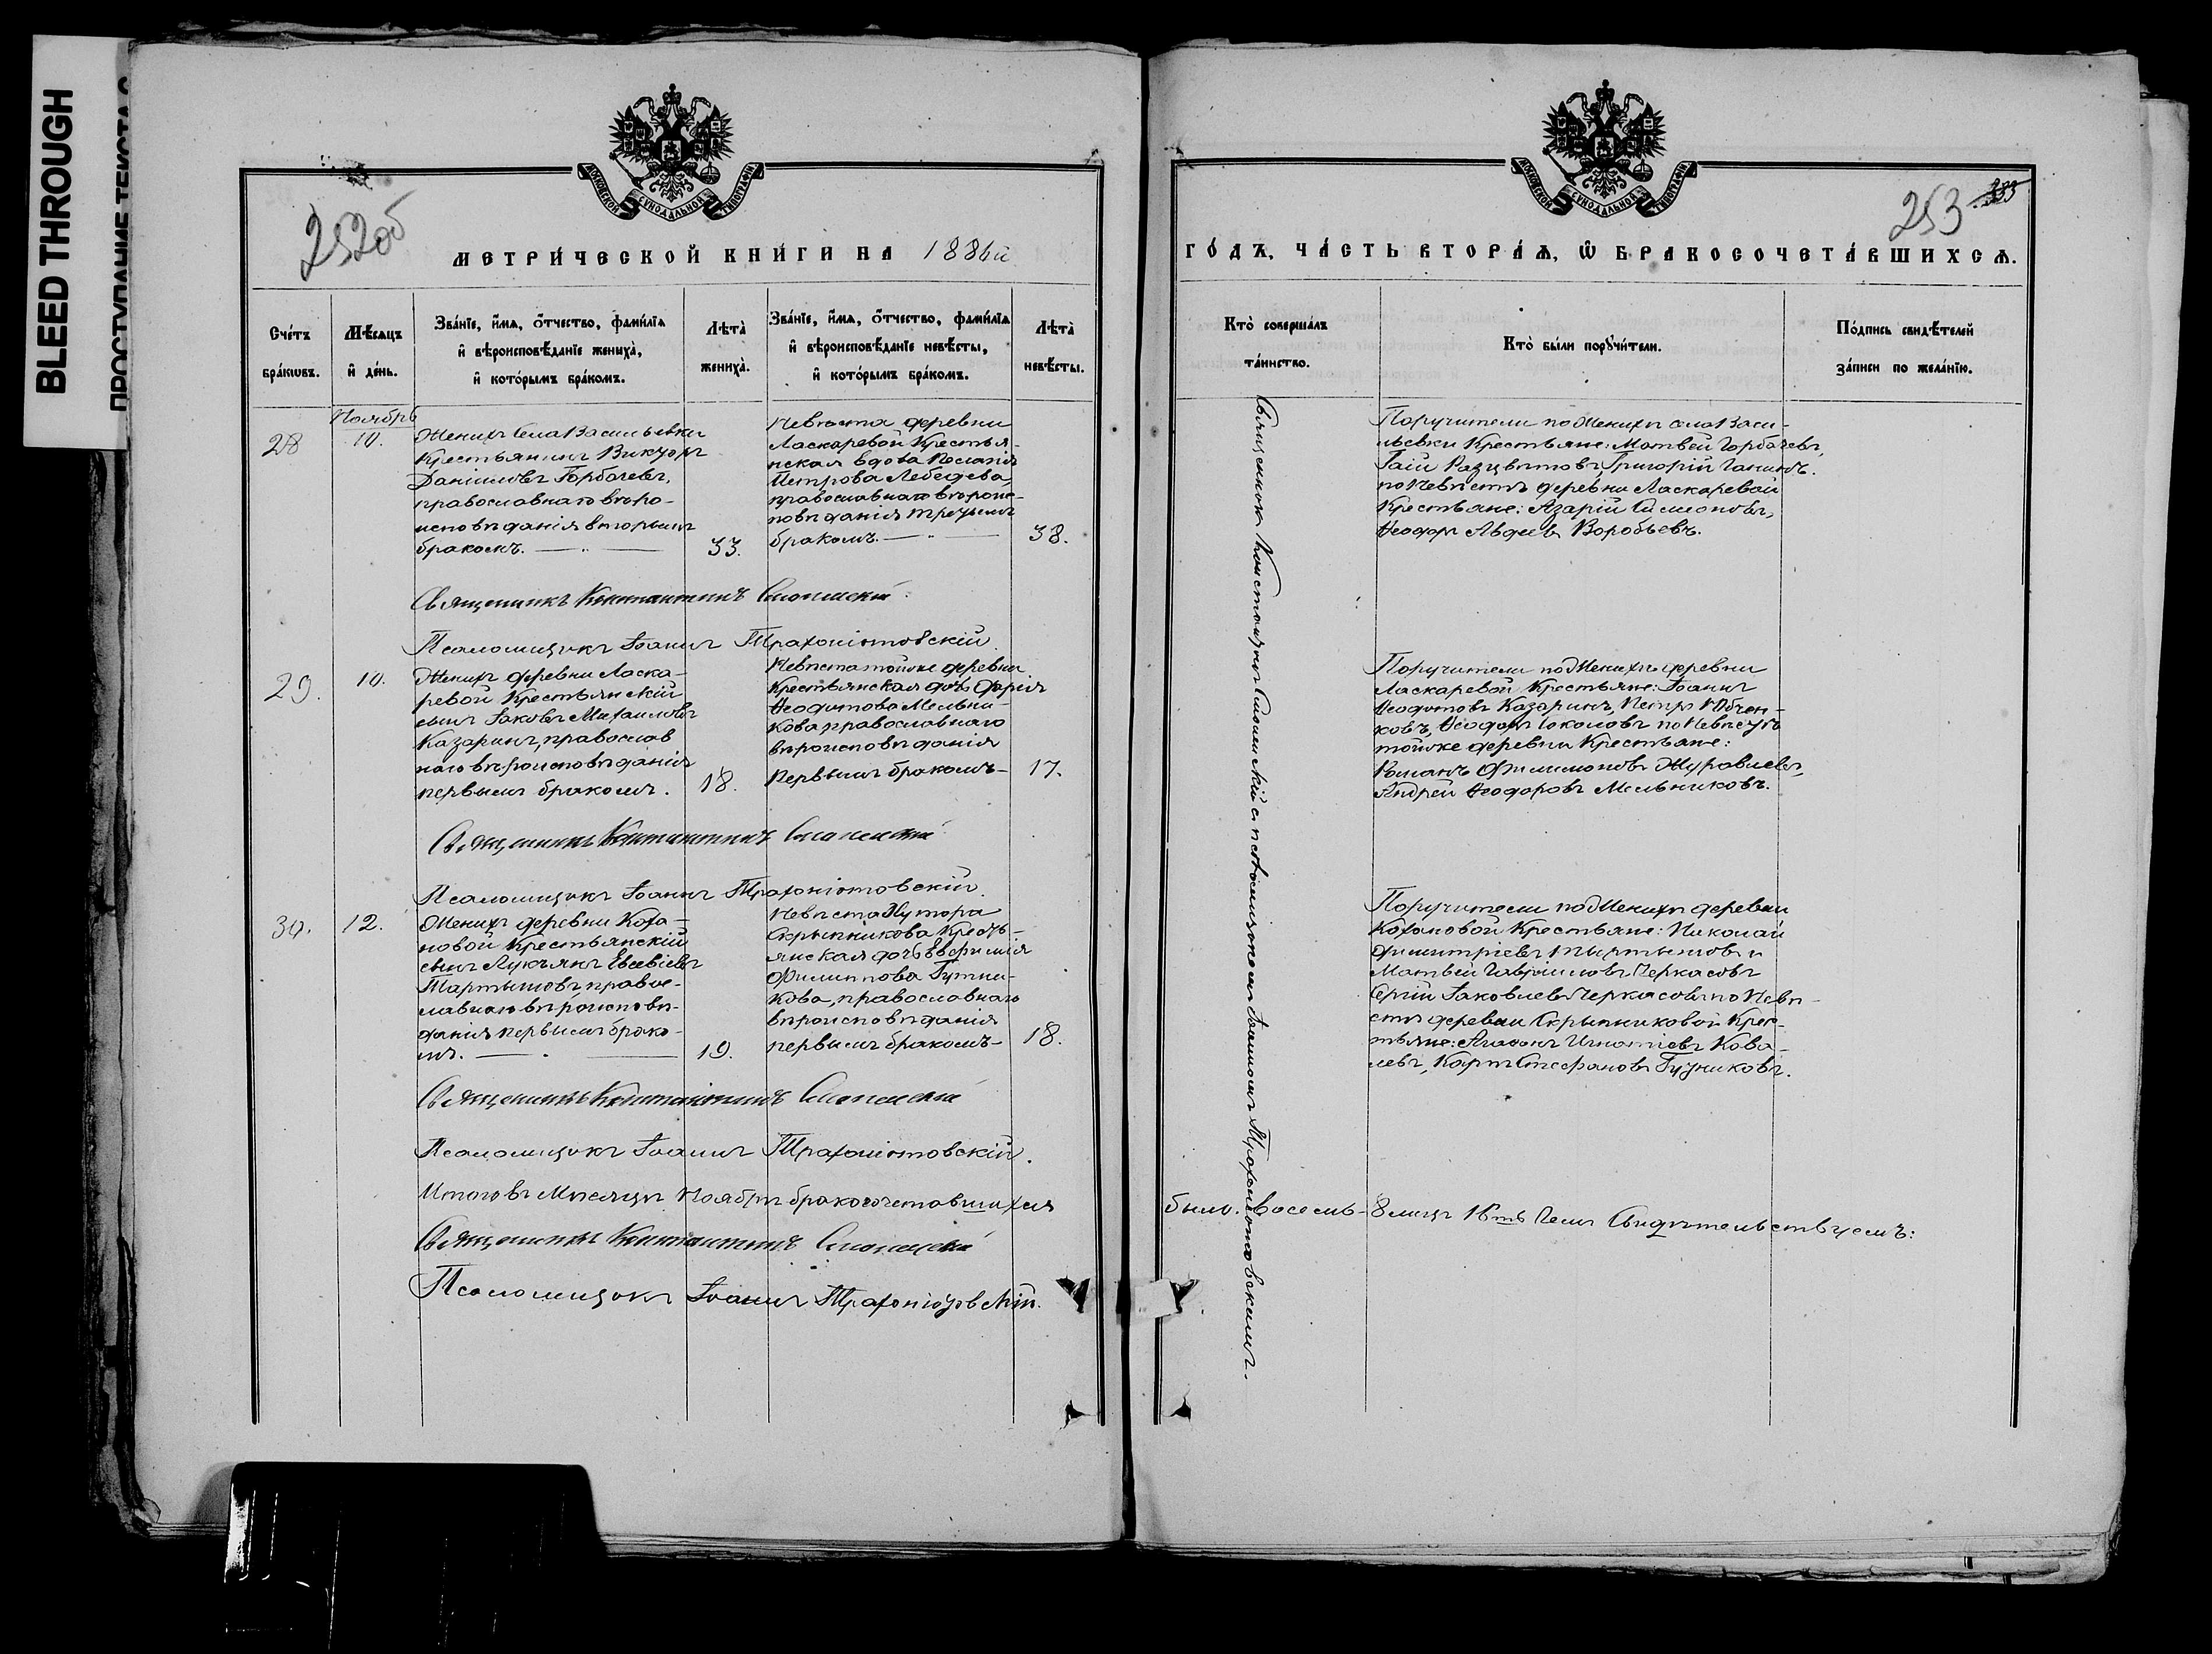 BLEED THROUGH
ПРОСТУПАНИЕ ТЕКСТА С
МОСКОВСКОЙ СѴНОДАЛЬНОЙ ТИПОГРАФІИ
252об
МЕТРИ́ЧЕСКОЙ КНИ́ГИ НА 1886й
Сче́тъ бра́кѡвъ.
Мѣ́сяцъ и҆ де́нь.
Зва́нїе, и҆́мѧ, ѻ҆́тчество, фами́лїѧ и҆ вѣроисповѣ́данїе жениха̀, и҆ кото́рымъ бра́комъ.
Лѣта̀ жениха̀.
Зва́нїе, и҆́мѧ, ѻ҆́тчество, фами́лїѧ и҆ вѣроисповѣ́данїе невѣ́сты, и҆ кото́рымъ бра́комъ.
Лѣта̀ невѣ́сты.
Ноябрь
28
10.
Женихъ Села Васильевки
Крестьянинъ Викторъ
Даніиловъ Горбачевъ,
православнаго вѣро-
исповѣданія вторымъ
бракомъ.
33.
Невѣста деревни
Ласкаревой Крестья-
нская вдова Пелагія
Петрова Лебедева,
православнаго вѣроис-
повѣданія третьимъ
бракомъ.
38.
Священникъ Константинъ
Псаломщикъ Іоаннъ Трахоніотовскій
29.
10.
Женихъ деревни Ласка-
ревой Крестьянскій
сынъ Іаковъ Михаиловъ
Казаринъ, православ
наго вѣроисповѣданія
первымъ бракомъ.
18.
Невѣста тойже деревни
Крестьянская дочь Дарія
Ѳеодотова Мельни-
кова православнаго
вѣроисповѣданія
Первымъ бракомъ
17.
Священникъ Константинъ
Псаломщикъ Іоаннъ Трахоніотовскій.
30.
12.
Женихъ деревни Коха-
новой Крестьянскій
сынъ Лукъянъ Евсевіевъ
Тартышовъ, правос-
лавнаго вѣроисповѣ-
данія первымъ брако-
мъ.
19.
Невѣста Хутора
Скрыпникова Кресть-
янская дочь Евфимія
Филиппова Гутни-
кова, православнаго
вѣроисповѣданія
первымъ бракомъ
18.
Священникъ Константинъ
Псаломщикъ Іоаннъ Трахоніотовскій.
Итого въ Мѣсяцѣ Ноябрѣ бракосочетавшихся
Священникъ Константинъ
Псаломщикъ Іоаннъ Трахоніотовскій.
МОСКОВСКОЙ СѴНОДАЛЬНОЙ ТИПОГРАФІИ
253
ГО́ДЪ, ЧА́СТЬ ВТОРА́Ѧ, Ѡ҆ БРАКОСОЧЕТА́ВШИХСѦ.
Кто̀ соверша́лъ та́инство.
Кто̀ бы́ли порꙋчи́тели.
По́дпись свидѣ́телей за́писи по жела́нїю.
Священникъ Константинъ съ псаломщикомъ Іоанномъ Трахоніотовскимъ.
Поручители по Женихѣ села Васи-
льевки Крестьяне: Матвей Горбачевъ,
Гаій Разцвѣтовъ, Григорій Ганинъ.
по Невѣстѣ деревни Ласкаревой
Крестьяне: Азарій Симеоновъ,
Ѳеодоръ Авдеевъ Воробьевъ.
Поручители по Женихѣ деревни
Ласкаревой Крестьяне: Іоаннъ
Ѳеодотовъ Казаринъ, Петръ
Ѳеодоръ Соколовъ по Невѣстѣ
тойже деревни Крестьяне:
Романъ Филимоновъ Журавлевъ,
Андрей Ѳеодоровъ Мельниковъ.
Поручители по Женихѣ деревни
Кохановой Крестьяне: Николай
Димитріевъ Тартышовъ и
Матвей Гавріиловъ Черкасовъ
Сергій Іаковлевъ Черкасовъ по Невѣ-
стѣ деревни Скрыпниковой Крес-
тьяне: Агафонъ Игнатіевъ Кова-
левъ, Карпъ Стефановъ Гутниковъ.
было. восемь 8 лицъ 16ть Чемъ Свидѣтельствуемъ: